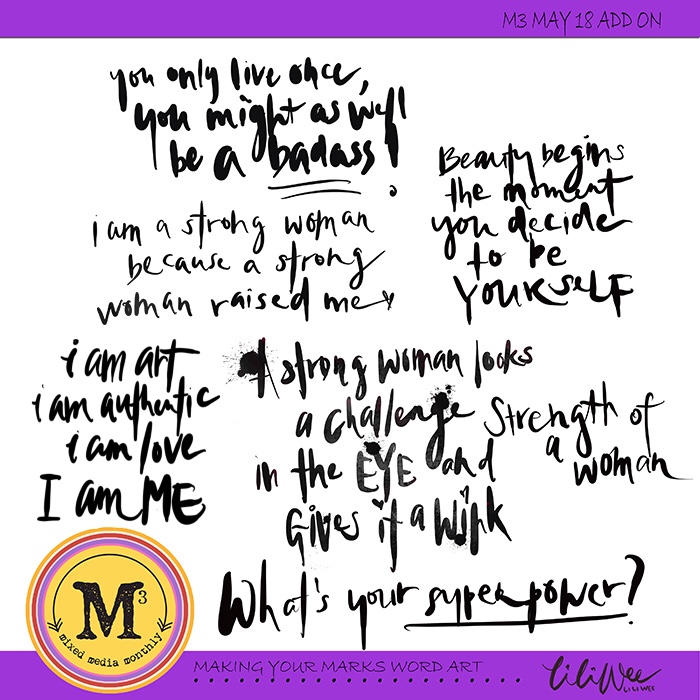 M3 MAY 18 ADD ON
you only live once,
you might as well
be a badass!
Beauty begins
the moment
you decide
to be
YOURSELF
i am a strong woman
because a strong
woman raised me
i am art
i am authentic
i am love
I am ME
A strong woman looks
a challenge
in the EYE and
Gives it a wink
Strength of
a woman
What's your superpower?
M3
mixed media monthly
MAKING YOUR MARKS WORD ART
LiLiWee
LILI WEE